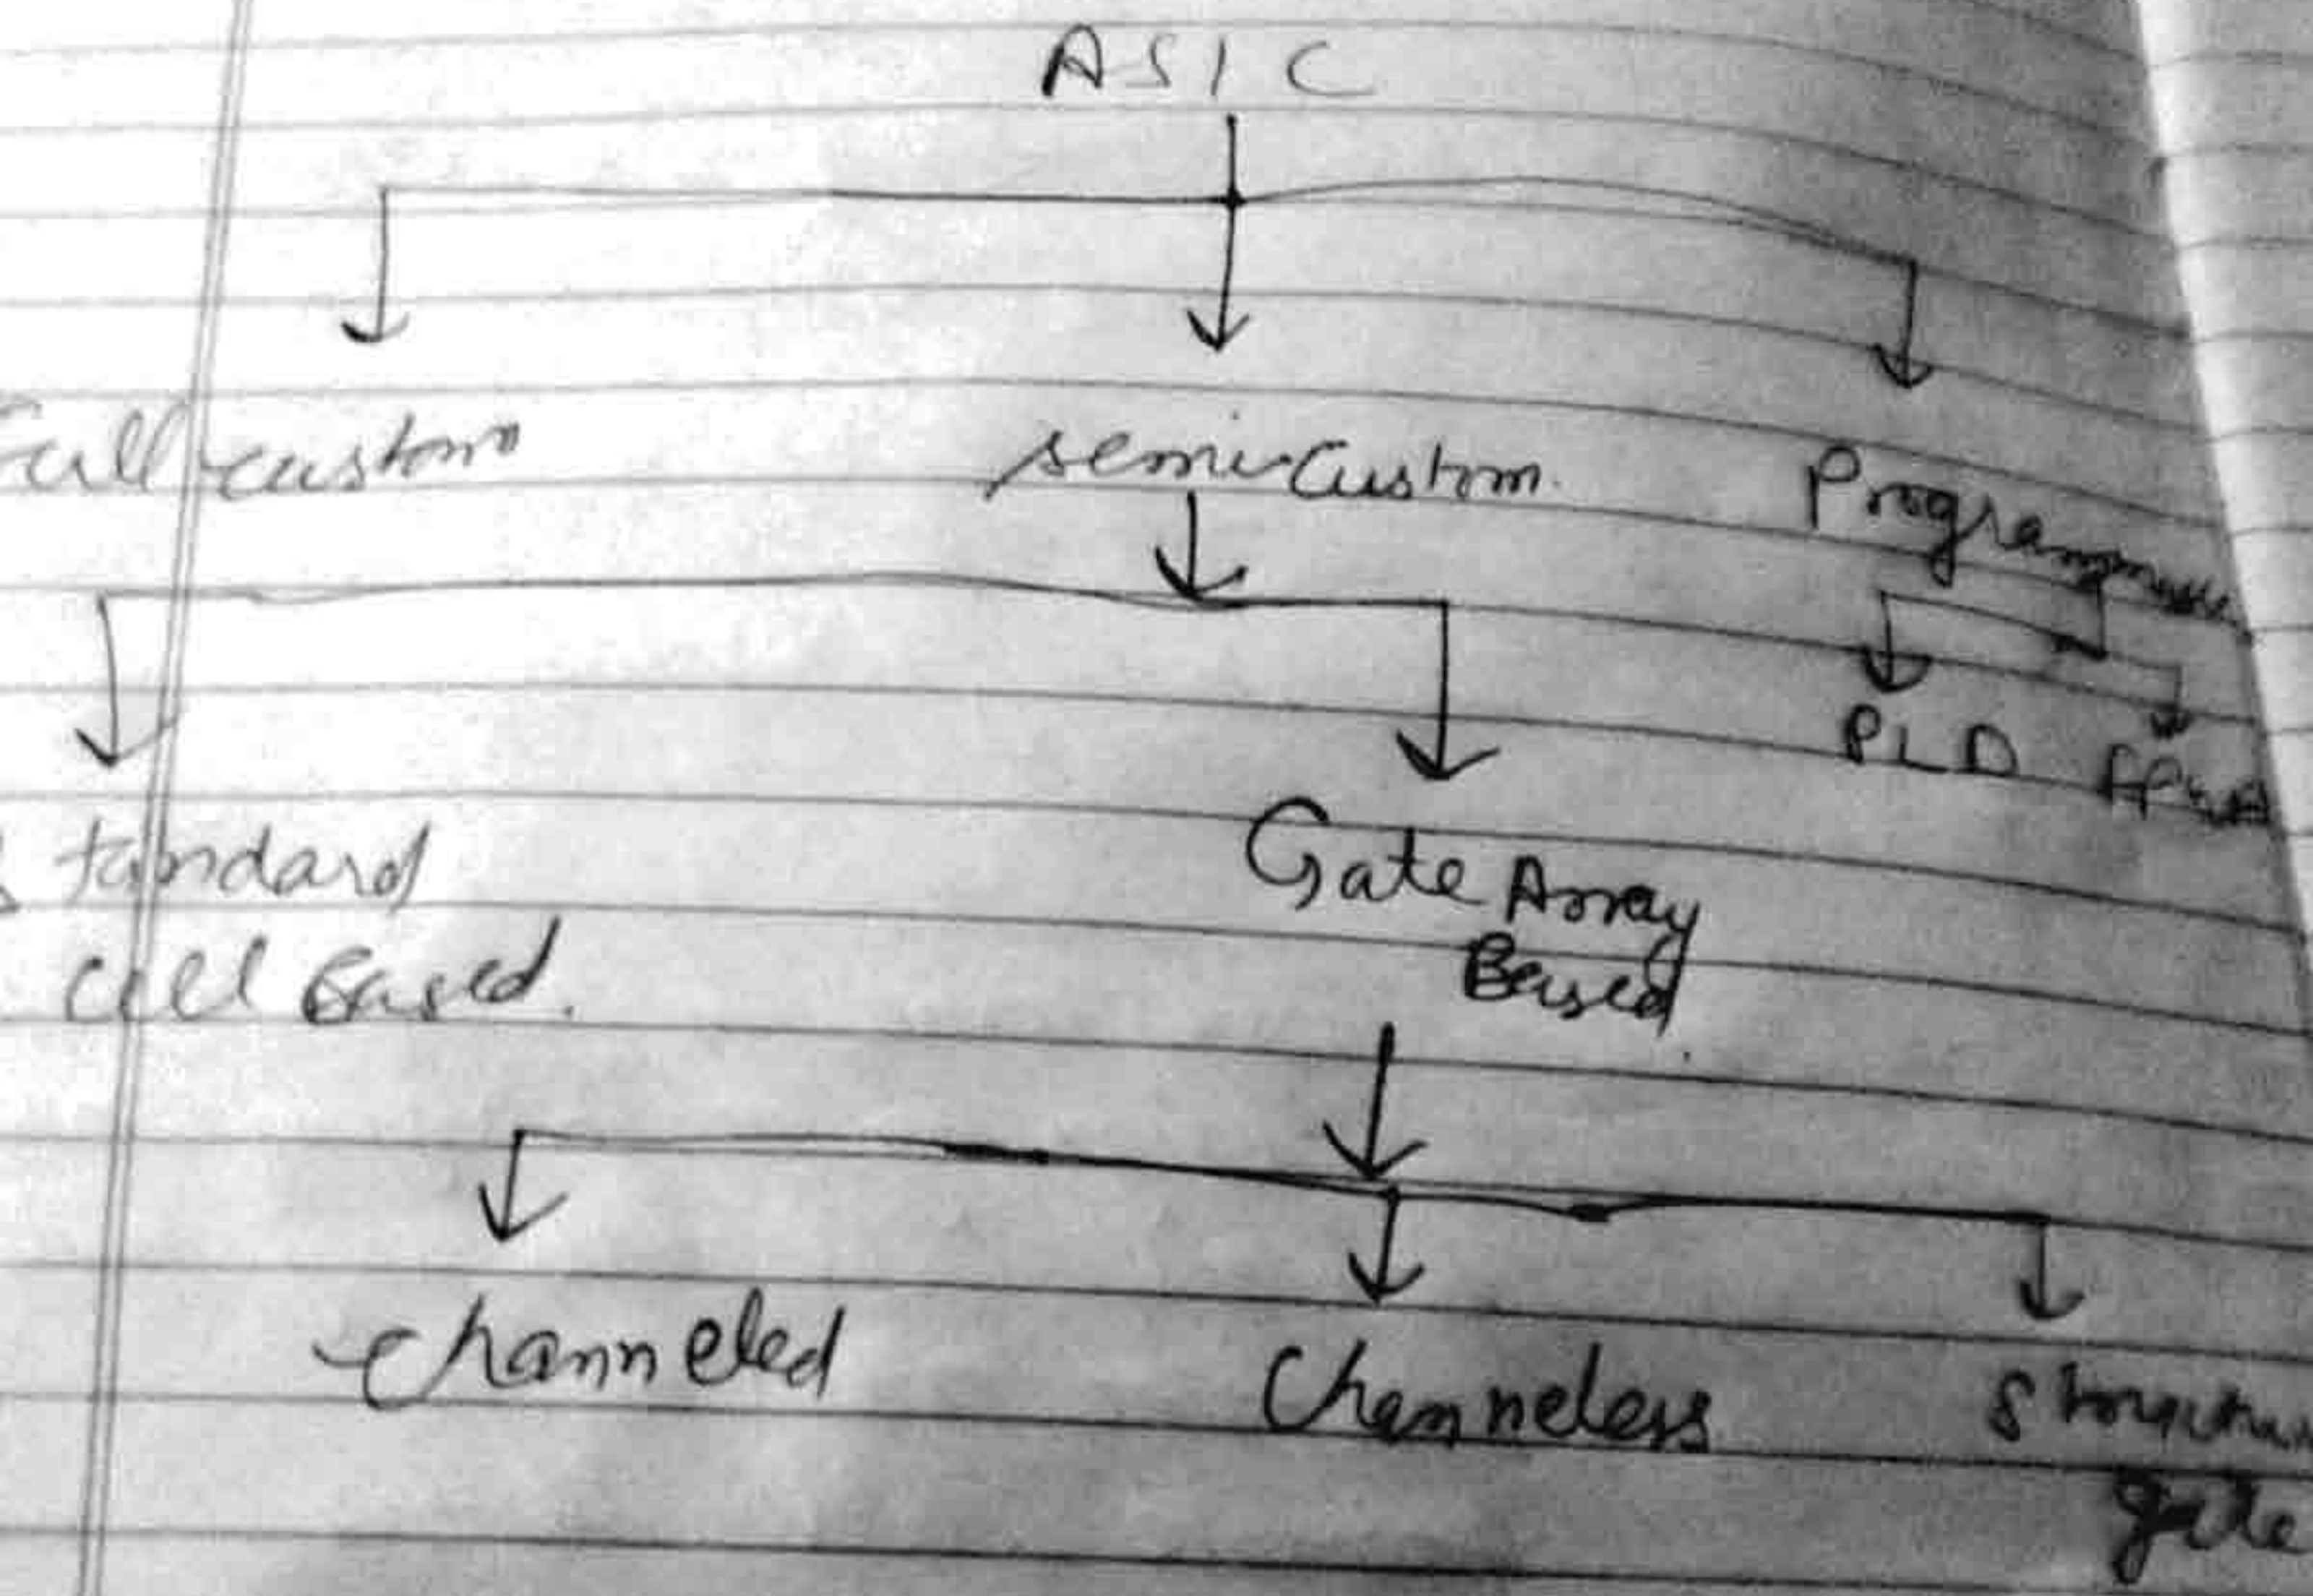 ASIC
Full custom
semi custom.
Programmable
PLD FPGA
Standard
Cell Based.
Gate Array
Based.
Channeled
Channeless
gate